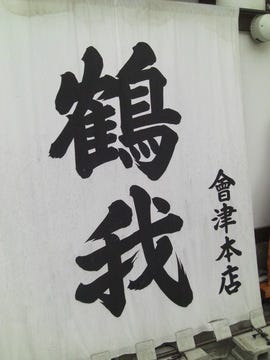 鶴我
會津本店